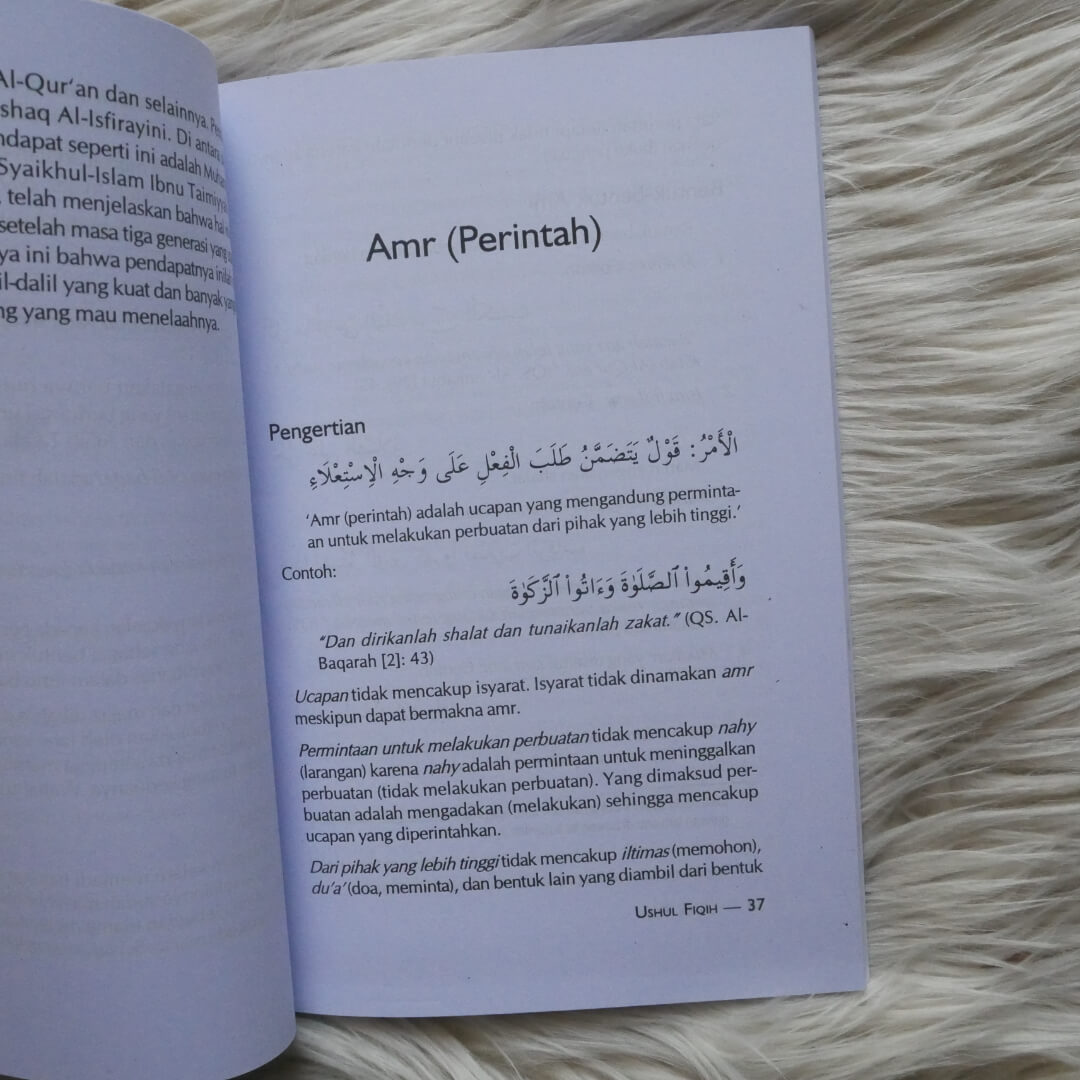 Al-Qur'an dan selainnya.
shaq Al-Isfirayini. Di antara
ndapat seperti ini adalah
Syaikhul-Islam Ibnu Taimiyyah
telah menjelaskan bahwa hal
setelah masa tiga generasi yang
ya ini bahwa pendapatnya inilah
il-dalil yang kuat dan banyak
ng yang mau menelaahnya.
Amr (Perintah)
Pengertian
الْأَمْرُ: قَوْلٌ يَتَضَمَّنُ طَلَبَ الْفِعْلِ عَلَى وَجْهِ الْاِسْتِعْلَاءِ
'Amr (perintah) adalah ucapan yang mengandung perminta-
an untuk melakukan perbuatan dari pihak yang lebih tinggi.'
Contoh:
وَأَقِيمُوا۟ ٱلصَّلَوٰةَ وَءَاتُوا۟ ٱلزَّكَوٰةَ
"Dan dirikanlah shalat dan tunaikanlah zakat." (QS. Al-
Baqarah [2]: 43)
Ucapan tidak mencakup isyarat. Isyarat tidak dinamakan amr
meskipun dapat bermakna amr.
Permintaan untuk melakukan perbuatan tidak mencakup nahy
(larangan) karena nahy adalah permintaan untuk meninggalkan
perbuatan (tidak melakukan perbuatan). Yang dimaksud per-
buatan adalah mengadakan (melakukan) sehingga mencakup
ucapan yang diperintahkan.
Dari pihak yang lebih tinggi tidak mencakup iltimas (memohon),
du'a' (doa, meminta), dan bentuk lain yang diambil dari bentuk
USHUL FIQIH — 37